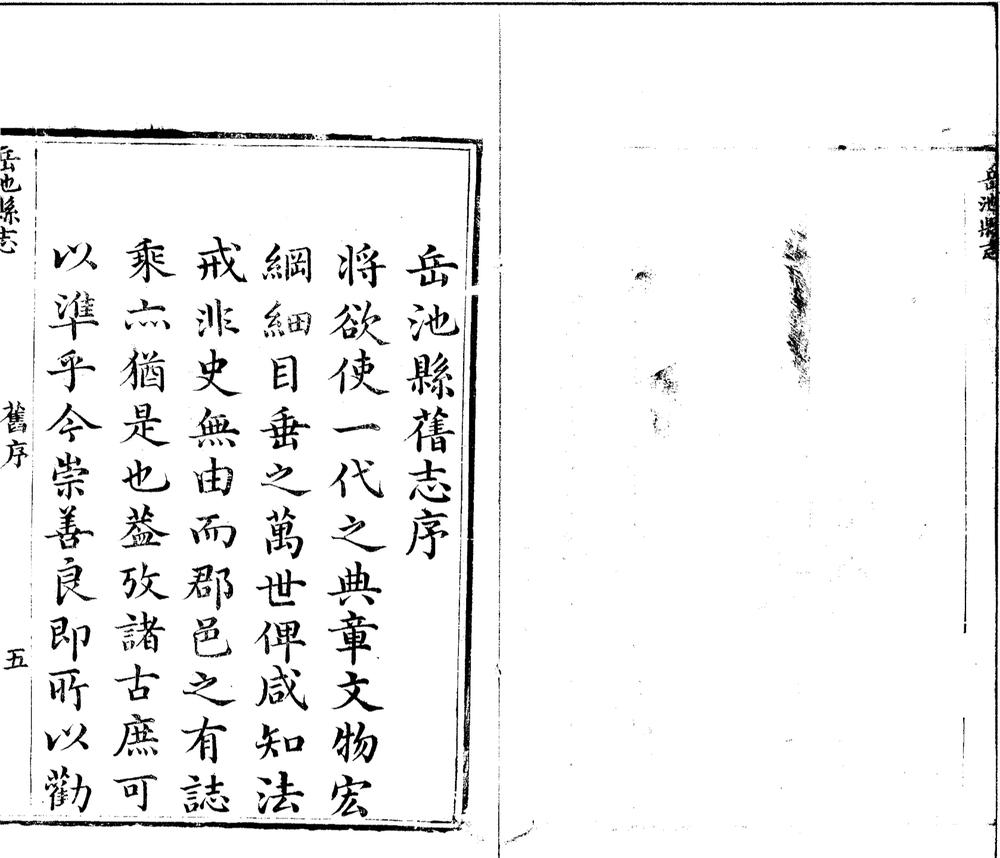 岳池縣志
岳池縣舊志序
將欲使一代之典章文物宏
綱細目垂之萬世俾咸知法
戒非史無由而郡邑之有誌
乘亦猶是也葢攷諸古庶可
以準乎今崇善良即所以勸
岳池縣志
舊序
五